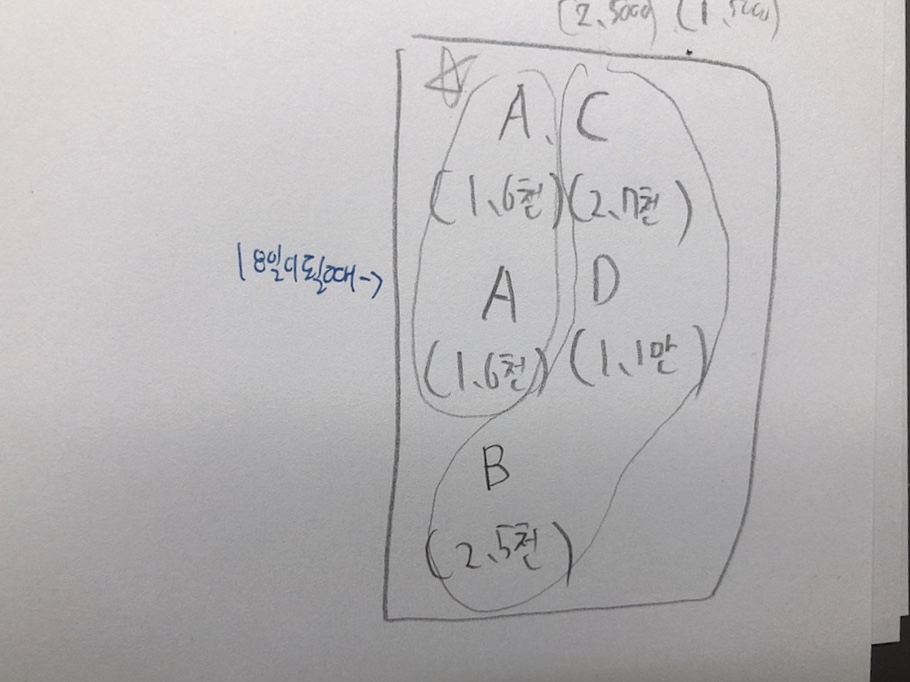 (2、5000) (1、5000)
A、 C
(1、6천) (2、7천)
18일이 될때->
A D
(1、6천) (1、1만)
B
(2、5천)